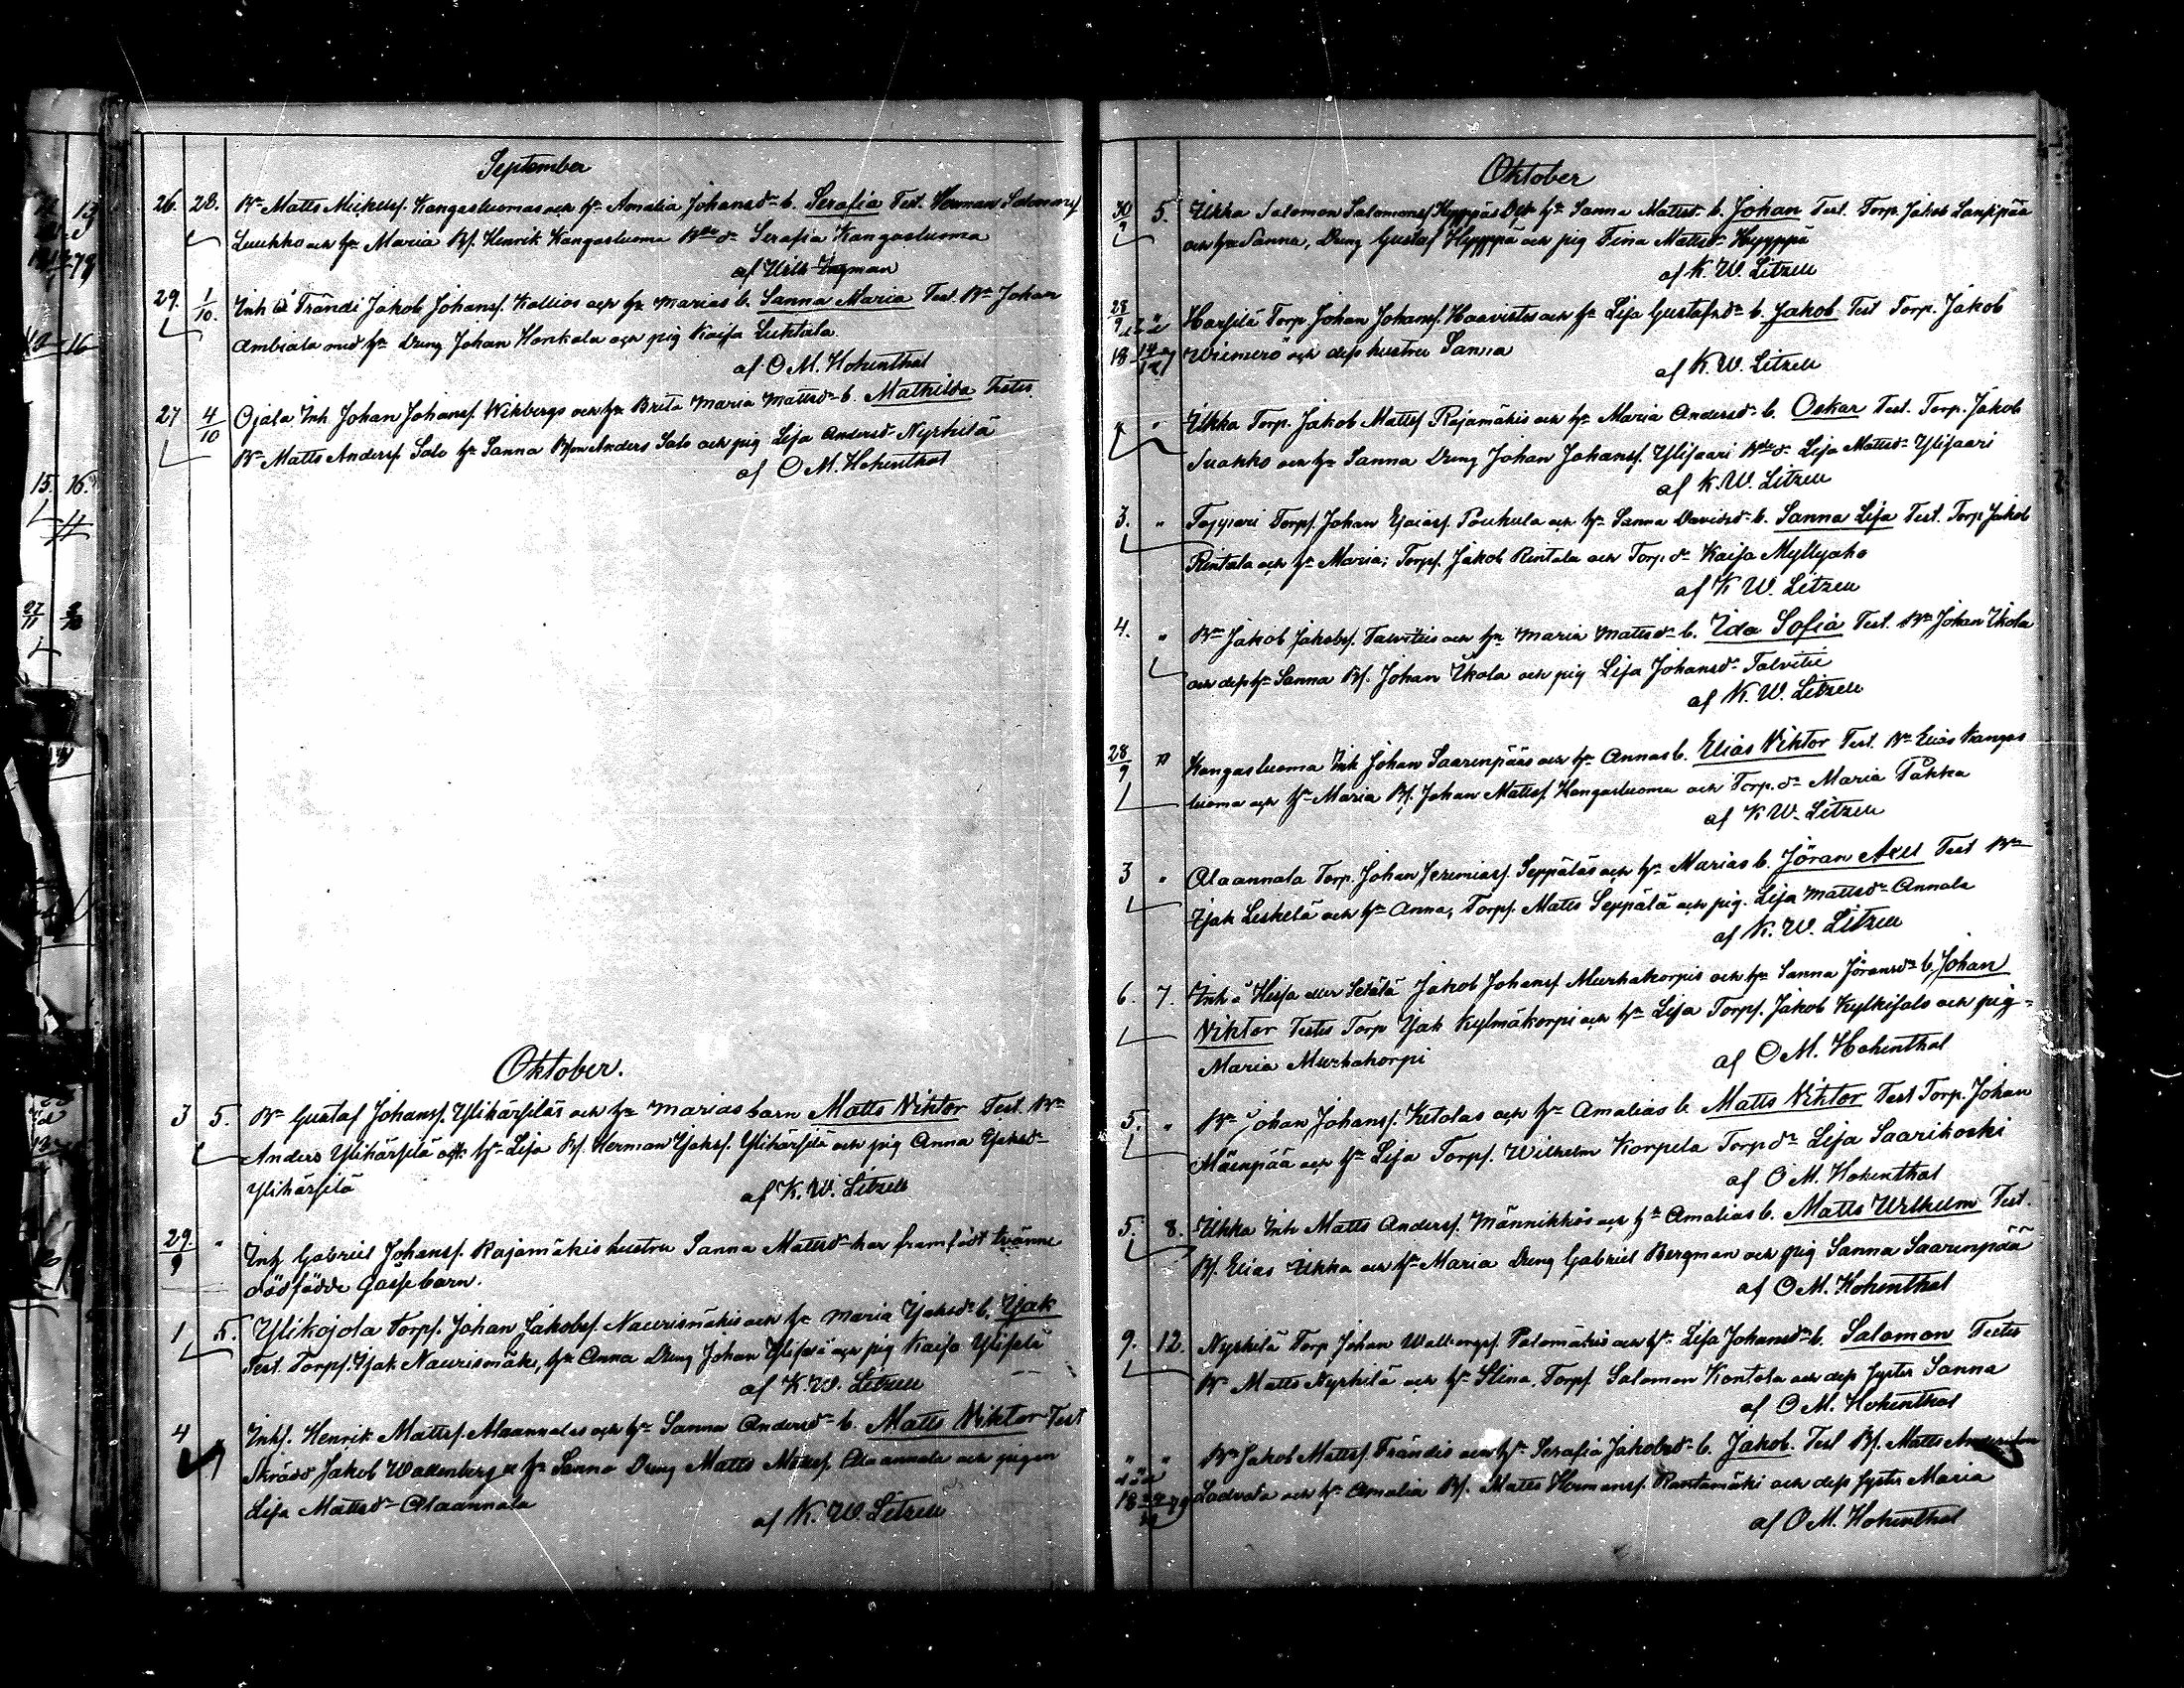 September
26. 28. Bn Matts Mickelss. Kangasluomas och h Amalia Johansd b. Serafia Test. Herman Salomonss
Luukko och h Maria Bs. Henrik Kangasluoma Bde d Serafia Kangasluoma
af Wilh Ingman
29. 1/10. Inh å Trändi Jakob Johanss. Kallios och h Marias b. Sanna Maria Test. Bn Johan
Ambiala med h Dreng Johan Honkala och pig Kaisa Luhtala
af O M. Hohenthal
27 4/10 Ojala Inh Johan Johanss. Wikbergs och h Brita Maria Mattsd b. Mathilda Testes
Bn Matts Anderss. Salo h Sanna Bson Anders Salo och pig Lisa Andersd Nyrhilä
af O M. Hohenthal
Oktober.
3 5. Bn Gustaf Johanss. Ylihärsiläs och h Marias barn Matts Viktor Test. Bn
Anders Ylihärsilä och h Lisa Bs. Herman Isakss. Ylihärsilä och pig Anna Isaksd
Ylihärsilä af K. W. Litzen
29/9 " Inh Gabriel Johanss. Rajamäkis hustru Sanna Mattsd har framfödt tvänne
dödfödde Gossebarn.
1 5. Ylikojola Torps. Johan Jakobss. Naurismäkis och h Maria Isaksd b. Isak
Test. Torps. Isak Naurismäki, h Anna Dreng Johan Yliselä och pig Kaisa Yliselä
af K. W. Litzen
4 " Inhs. Henrik Mattss. Alaannalas och h Sanna Andersd b. Matts Viktor Test
Skrädd Jakob Wallenberg o h Sanna Dreng Matts Mattss. Alaannala och pigan
Lisa Mattsd Alaannala
af K. W. Litzen
Oktober
30/9 5. Ilkka Salomon Salomonss Hyyppäs Och h Sanna Mattsd b. Johan Test. Torp. Jakob Lanspää
och h Sanna, Dreng Gustaf Hyyppä och pig Fina Mattsd Hyyppä
af K. W. Litzen
28/9 " Harsilä Torp Johan Johanss. Haavistos och h Lisa Gustafsd b. Jakob Test Torp. Jakob
Wiemerö och dess hustru Sanna
af K. W. Litzen
" " Ilkka Torp. Jakob Mattss Rajamäkis och h Maria Andersd b. Oskar Test. Torp. Jakob
Suokko och h Sanna Dreng Johan Johanss. Ylisaari Bde d Lisa Mattsd Ylisaari
af K. W. Litzen
3. " Toppari Torps. Johan Esaiass. Pouhula och h Sanna Davidsd b. Sanna Lisa Test. Torp Jakob
Rintala och h Maria; Torps. Jakob Rintala och Torp. d Kaisa Myllyaho
af K W. Litzen
4. " Bn Jakob Jakobss. Talvities och h Maria Mattsd b. Ida Sofia Test. Bn Johan Ikola
och dess h Sanna Bs. Johan Ikola och pig Lisa Johansd Talvitie
af K. W. Litzen
28/9 " Kangasluoma Inh Johan Saarenpääs och h Annas b. Elias Viktor Test. Bn Elias Kangas
luoma och h Maria Bs. Johan Mattss. Kangasluoma och Torp. d Maria Påkka
af K W. Litzen
3 " Alaannala Torp. Johan Jeremiass. Seppäläs och h Marias b. Jöran Axel Test Bn
Isak Leskelä och h Anna, Torps. Matts Seppälä och pig. Lisa Mattsd Annala
af K. W. Litzen
6. 7. Inh å Hissa eller Setälä Jakob Johanss Murhakorpis och h Sanna Jöransd b. Johan
Viktor Testes Torp Isak Kylmäkorpi och h Lisa Torps. Jakob Kylkisalo och pig-
Maria Murhakorpi af O M. Hohenthal
5. " Bn Johan Johanss. Ketolas och h Amalias b. Matts Viktor Test Torp. Johan
Mäenpää och h Lisa Torps. Wilhelm Korpela Torp d Lisa Saarikoski
af O M. Hohenthal
5. 8. Ilkka Inh Matts Anderss. Männikkös och h Amalias b. Matts Wilhelm Test.
Bs. Elias Ilkka och h Maria Dreng Gabriel Bergman och pig Sanna Saarenpää
af O M. Hohenthal
9. 12. Nyrhilä Torp Johan Palomäkis och h Lisa Johansd b. Salomon Testes
Bn Matts Nyrhilä och h Stina, Torps Salomon Kontola och dess syster Sanna
af O M. Hohenthal
" " Bn Jakob Mattss. Trändis och h Serafia Jakobsd b. Jakob. Test Bs. Matts
Ladvala och h Amalia Bs. Matts Hermanss. Rantamäki och dess syster Maria
af O M. Hohenthal